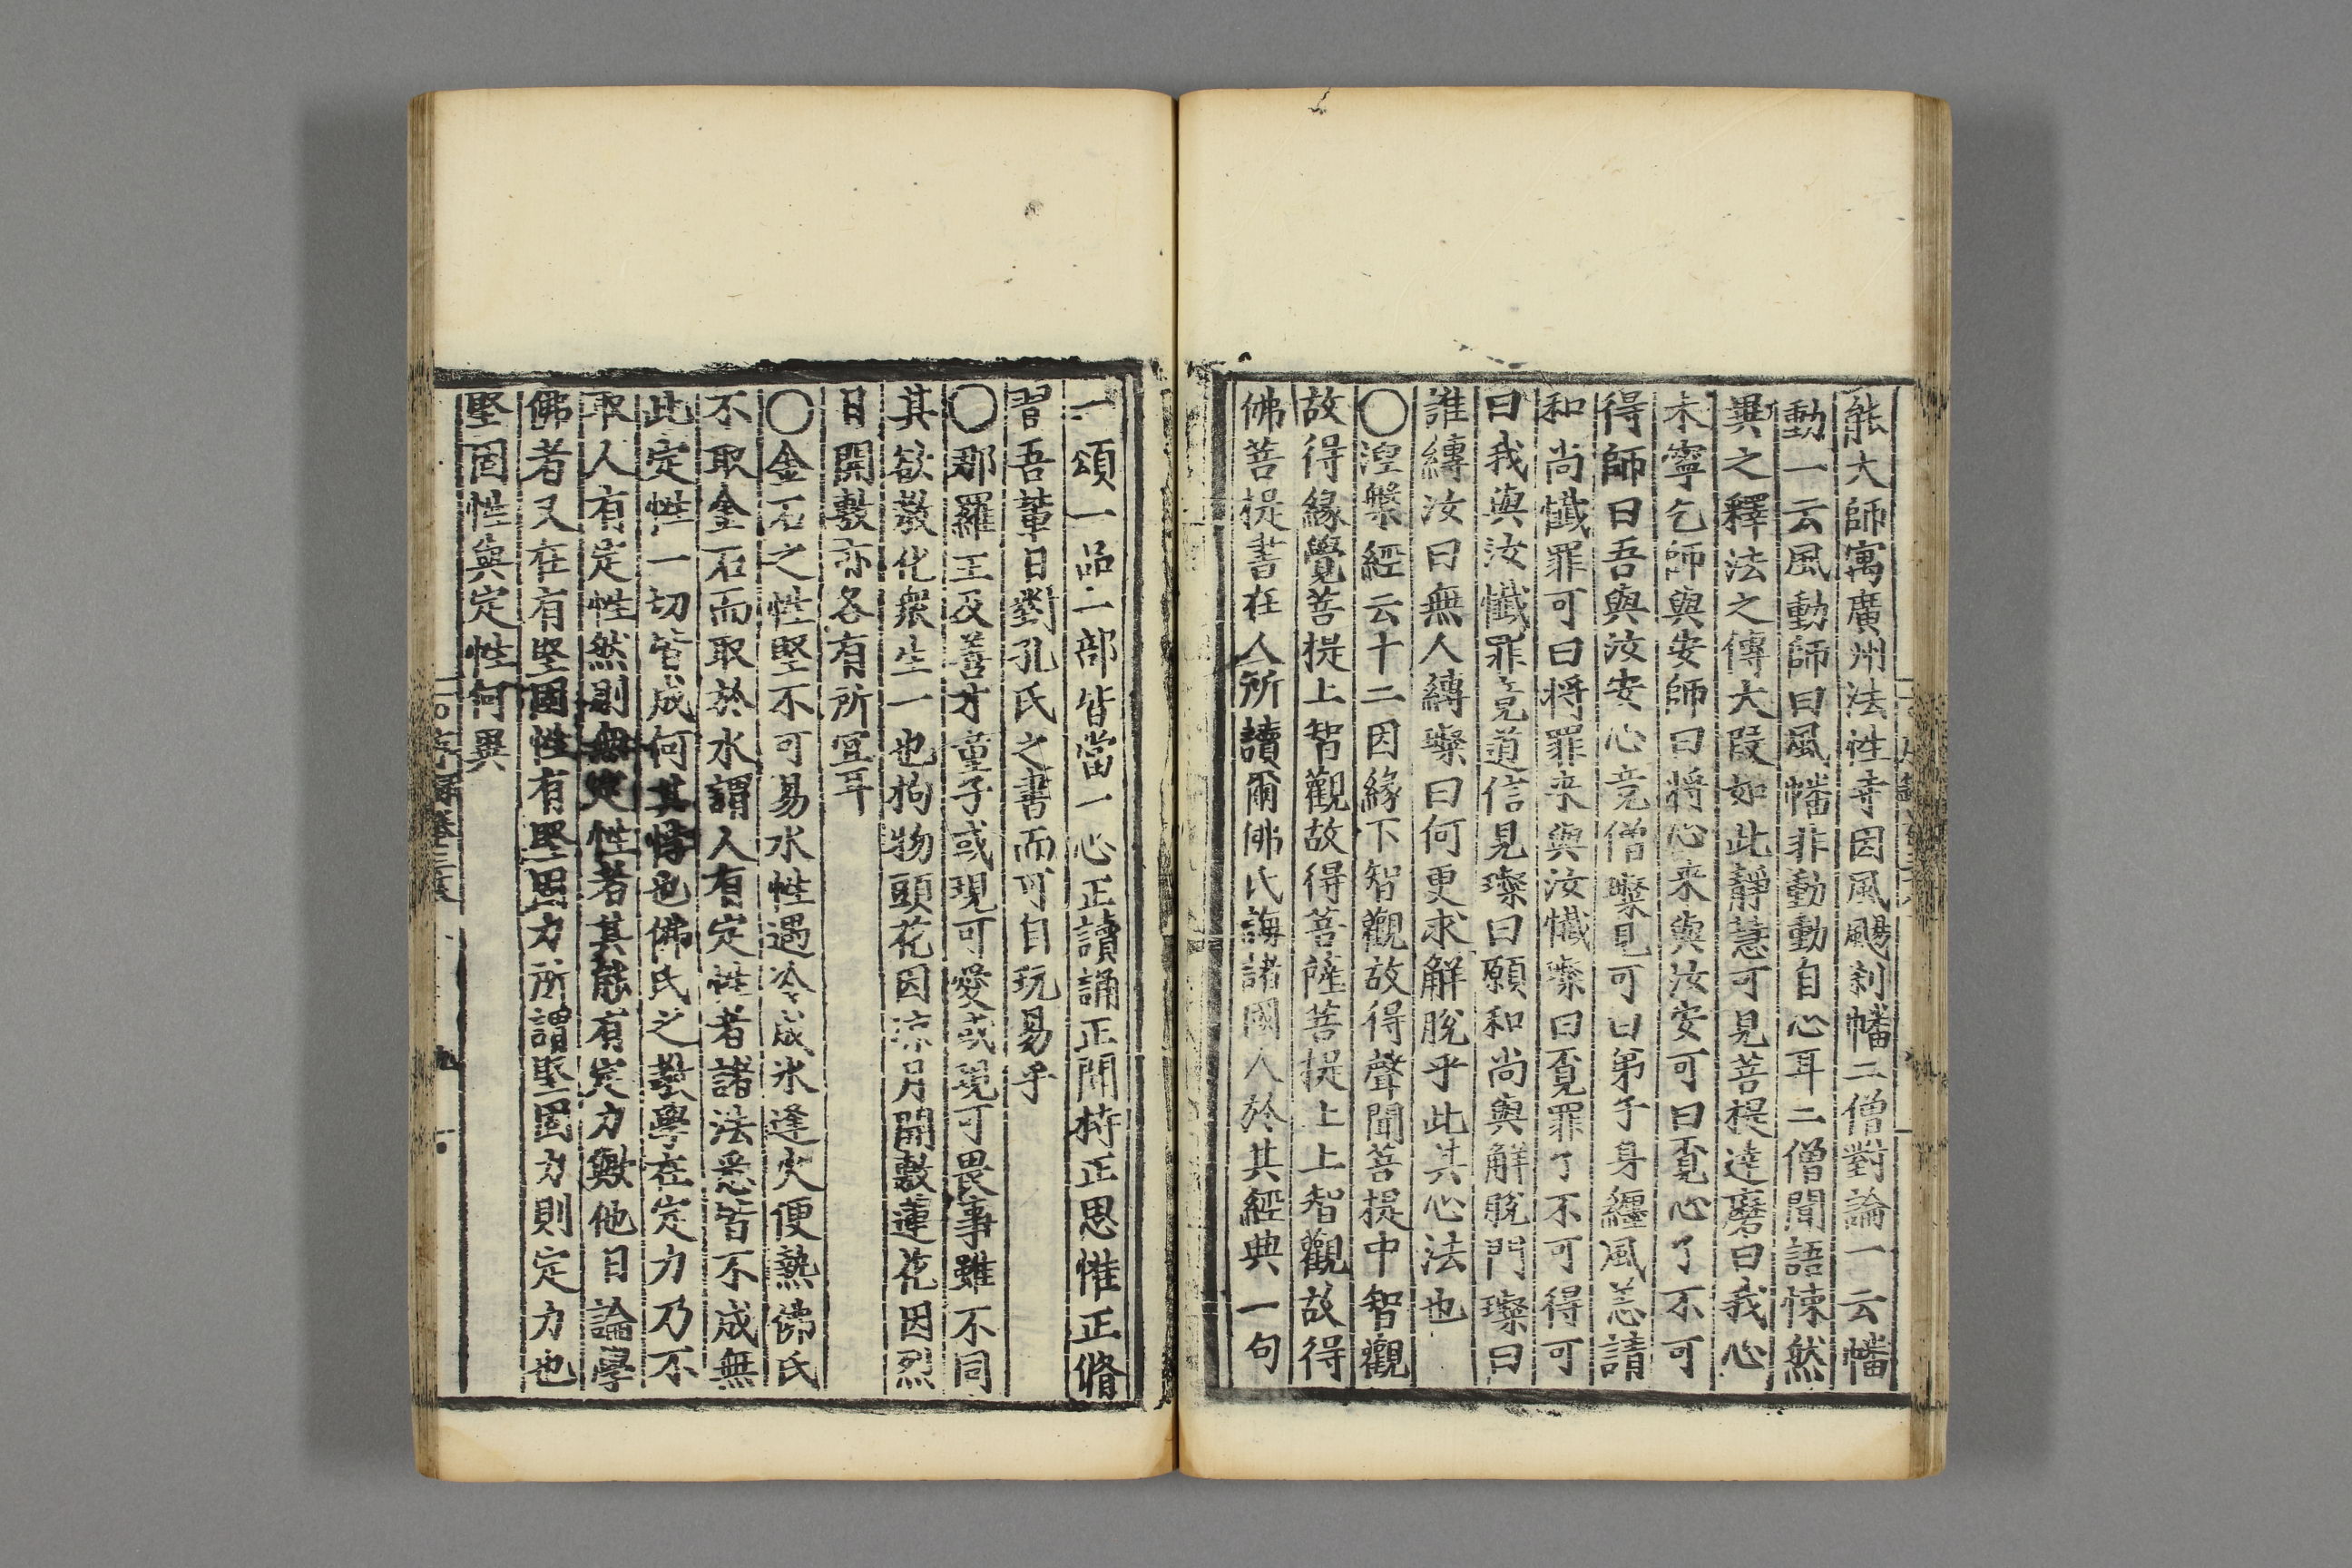 能大師寓廣州法性寺因風颺刹幡二僧對論一云幡
動一云風動師曰風幡非動動自心耳二僧聞語悚然
異之釋法之傳大叚如此靜慧可見菩提達磨曰我心
未寧乞師與安師曰將心來與汝安可曰覔心了不可
得師曰吾與汝安心竟僧璨見可曰弟子身纏風恙請
和尚懺罪可曰将罪来與汝懺璨曰覔罪了不可得可
曰我與汝懺罪竟道信見璨曰願和尚與解脫門璨曰
誰縛汝曰無人縛璨曰何更求解脫乎此其心法也
〇湼槃經云十二因緣下智觀故得聲聞菩提中智觀
故得緣覺菩提上智觀故得菩薩菩提上上智觀故得
佛菩提書在人所讀爾佛氏誨諸國人於其經典一句
一頌一品一部皆當一心正讀誦正開持正思惟正脩
習吾輩日對孔氏之書而可自玩易乎
〇那羅王及善才童子或現可愛或現可畏事雖不同
其欲敎化衆生一也拘物頭花因凉月開敷蓮花因烈
日開敷亦各有所宜耳
〇金石之性堅不可易水性遇冷成氷逢火便熱佛氏
不取金石而取於水謂人有定性者諸法悉皆不成無
此定性一切皆成何其悖也佛氏之敎學在定力乃不
取人有定性然則無定性若其能有定力歟他日論學
佛者又在有堅固性有堅固力所謂堅固力則定力也
堅固性與定性何異